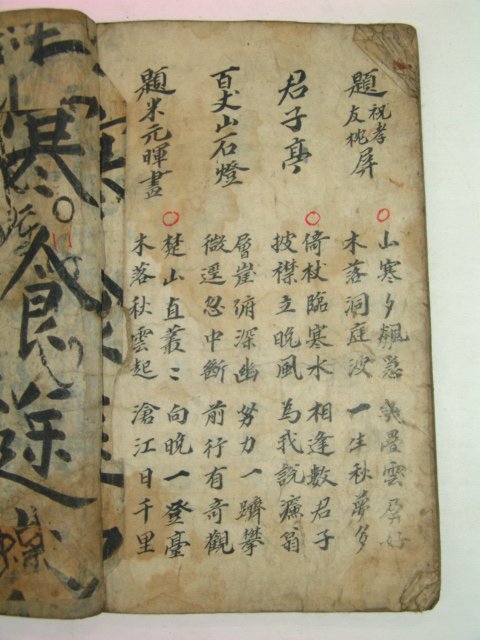 題祝孝友枕屏
山寒夕飆急 疊雲屏好
木落洞庭波 一生秋夢多
君子亭
倚杖臨寒水 相逢數君子
披襟立晚風 為我說濂翁
百丈山石燈
層崖俯深幽 努力一躋攀
微逕忽中斷 前行有奇觀
題米元暉畫
楚山直叢〻 向晚一登臺
木落秋雲起 滄江日千里
寒食途